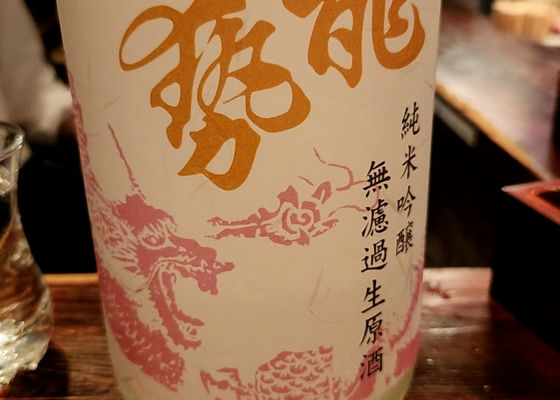 龍勢
純米吟醸
無濾過生原酒